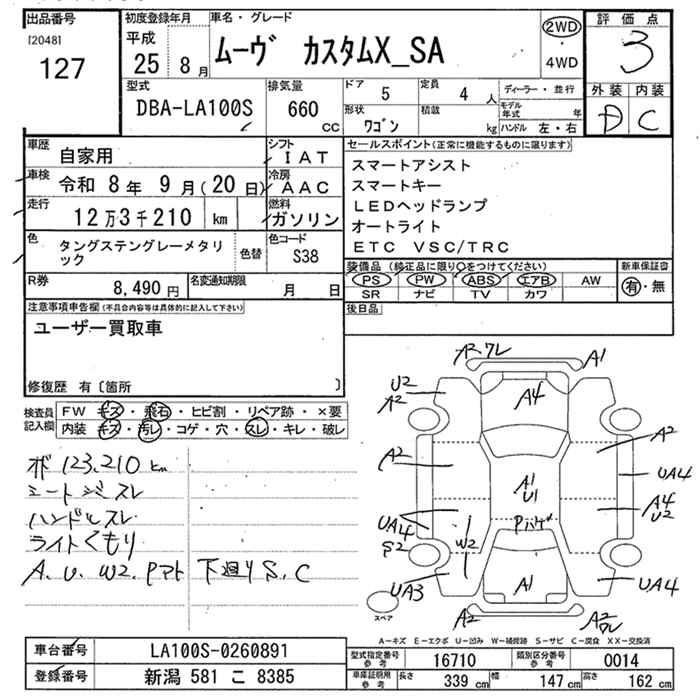 出品番号
[2048]
127
初度登録年月
平成
25 8月
車名・グレード
ムーヴ カスタムX_SA
2WD
・
4WD
評価点
3
外装 内装
D C
型式
DBA-LA100S
排気量
660 cc
ドア 5
定員 4 人
形状 ワゴン
積載 kg
ディーラー・並行
モデル年式 年
ハンドル 左・右
車歴 自家用
シフト IAT
車検 令和 8年 9月(20日)
冷房 AAC
走行 12万3千210 km
燃料 ガソリン
色 タングステングレーメタリック
色替
色コード S38
R券 8,490円
名変通知期限 月 日
セールスポイント(正常に機能するものに限ります)
スマートアシスト
スマートキー
LEDヘッドランプ
オートライト
ETC VSC/TRC
装備品 (純正品に限り○をつけてください)
PS PW ABS エアB AW
SR ナビ TV カワ
新車保証書
有・無
後日品
注意事項申告欄(不具合内容等は具体的に記入して下さい)
ユーザー買取車
修復歴 有〔箇所 〕
検査員記入欄
FW キズ・飛石・ヒビ割・リペア跡・×要
内装 キズ・汚レ・コゲ・穴・スレ・キレ・破レ
ボ 123,210 km
シートジミスレ
ハンドルスレ
ライトくもり
A. U. W2. Pマト 下廻りS.C
A2 ワレ A1
U2 A2 A4
A2 A2
UA4
A1 U1
A4 U2
Pハゲ
UA4 S2 W2
UA3 A1 UA4
スペア
A2 A2 ワレ
A-キズ E-エクボ U-凹み W-補修跡 S-サビ C-腐食 XX-交換済
車台番号 LA100S-0260891
登録番号 新潟 581 こ 8385
型式指定番号 参考 16710
類別区分番号 参考 0014
車庫証明用 参考 長さ 339 cm 幅 147 cm 高さ 162 cm